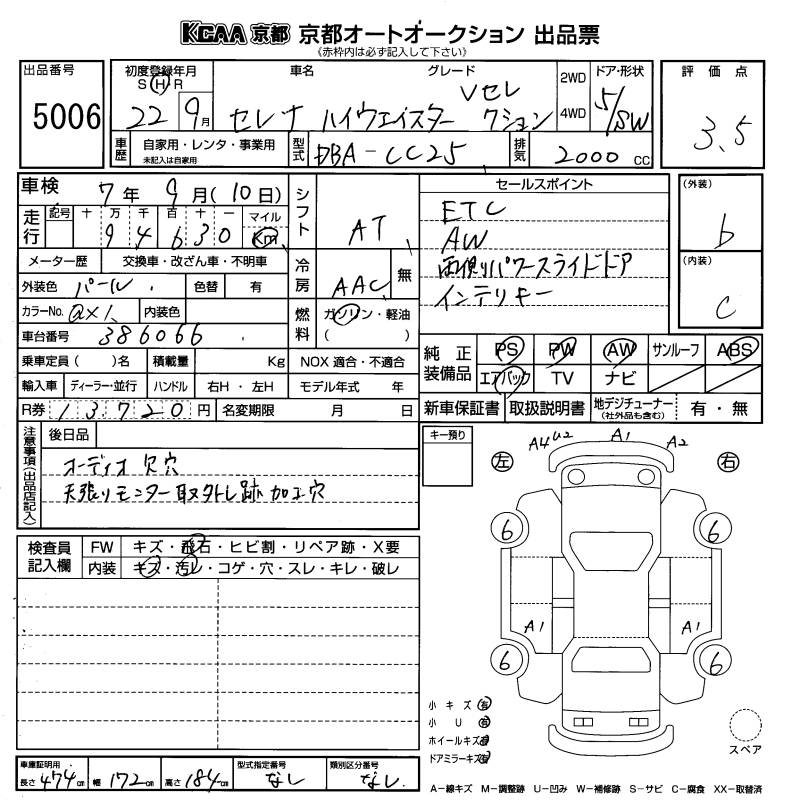 KCAA 京都 京都オートオークション 出品票
(赤枠内は必ず記入して下さい)
出品番号 初度登録年月 車名 グレード ドア・形状 評価点
S H R 2WD
5006 22 9月 セレナ ハイウェイスター Vセレクション 4WD 5/SW 3.5
車歴 自家用・レンタ・事業用 型式 DBA-CC25 排気 2000 cc
未記入は自家用
車検 7年 9月(10日) シフト AT セールスポイント (外装)
走行 記号 十 万 千 百 十 一 マイル ETC b
9 4 6 3 0 Km AW
メーター歴 交換車・改ざん車・不明車 冷房 AAC 無 両側パワースライドドア (内装)
外装色 パール 色替 有 インテリキー c
カラーNo. QX1 内装色 燃料 ガソリン・軽油
車台番号 386066 ( )
乗車定員 ( )名 積載量 Kg NOX 適合・不適合 純正装備品 PS PW AW サンルーフ ABS
輸入車 ディーラー・並行 ハンドル 右H・左H モデル年式 年 エアバック TV ナビ
R券 13720円 名変期限 月 日 新車保証書 取扱説明書 地デジチューナー(社外品も含む) 有・無
注意事項(出品店記入) 後日品 キー預り
オーディオ欠穴
天張りモニター取外し跡加工穴
A4 U2 A1 A2
左 右
検査員記入欄 FW キズ・飛石・ヒビ割・リペア跡・X要
内装 キズ・汚レ・コゲ・穴・スレ・キレ・破レ
6 6
A1 A1
6 6
小キズ 有
小U 有
ホイールキズ 有
ドアミラーキズ 有
スペア
車庫証明用 長さ 474cm 幅 172cm 高さ 184cm 型式指定番号 なし 類別区分番号 なし
A-線キズ M-調整跡 U-凹み W-補修跡 S-サビ C-腐食 XX-取替済